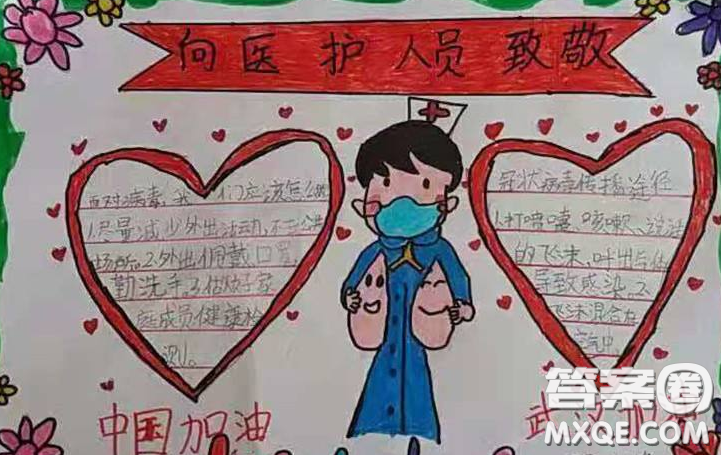 向医护人员致敬
面对病毒,我们应该怎么做
1.尽量减少外出活动,不去公共
场所。2.外出佩戴口罩,
勤洗手。3.做好家
庭成员健康检
测。
冠状病毒传播途径
1.打喷嚏、咳嗽、说话
的飞沫,呼出气体
导致感染。2.
飞沫混合在
空气中
中国加油
武汉加油
答案圈
MXQE.COM